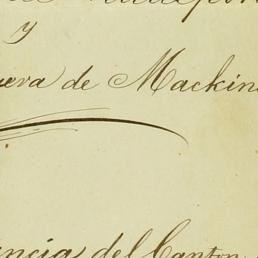 y
eva de Mackin
ncia del Canton